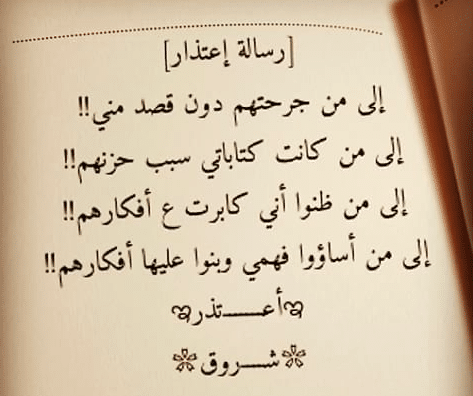 [رسالة إعتذار]
إلى من جرحتهم دون قصد مني!!
إلى من كانت كتاباتي سبب حزنهم!!
إلى من ظنوا أني كابرت ع أفكارهم!!
إلى من أساؤوا فهمي وبنوا عليها أفكارهم!!
أعـــتذر
شــروق